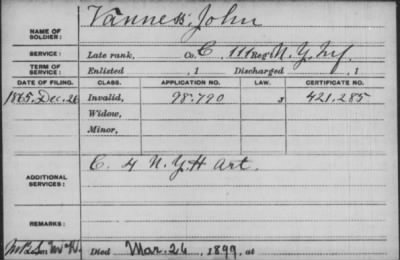 NAME OF SOLDIER: Vanness, John
SERVICE: Late rank, Co. C, 111 Reg't N.Y. Inf.
TERM OF SERVICE: Enlisted , 1 Discharged , 1
DATE OF FILING. CLASS. APPLICATION NO. LAW. CERTIFICATE NO.
1865, Dec. 26 Invalid, 98.790 421.285
Widow,
Minor,
ADDITIONAL SERVICES: C. 4 N.Y. H Art.
REMARKS:
Died Mar. 26, 1899, at